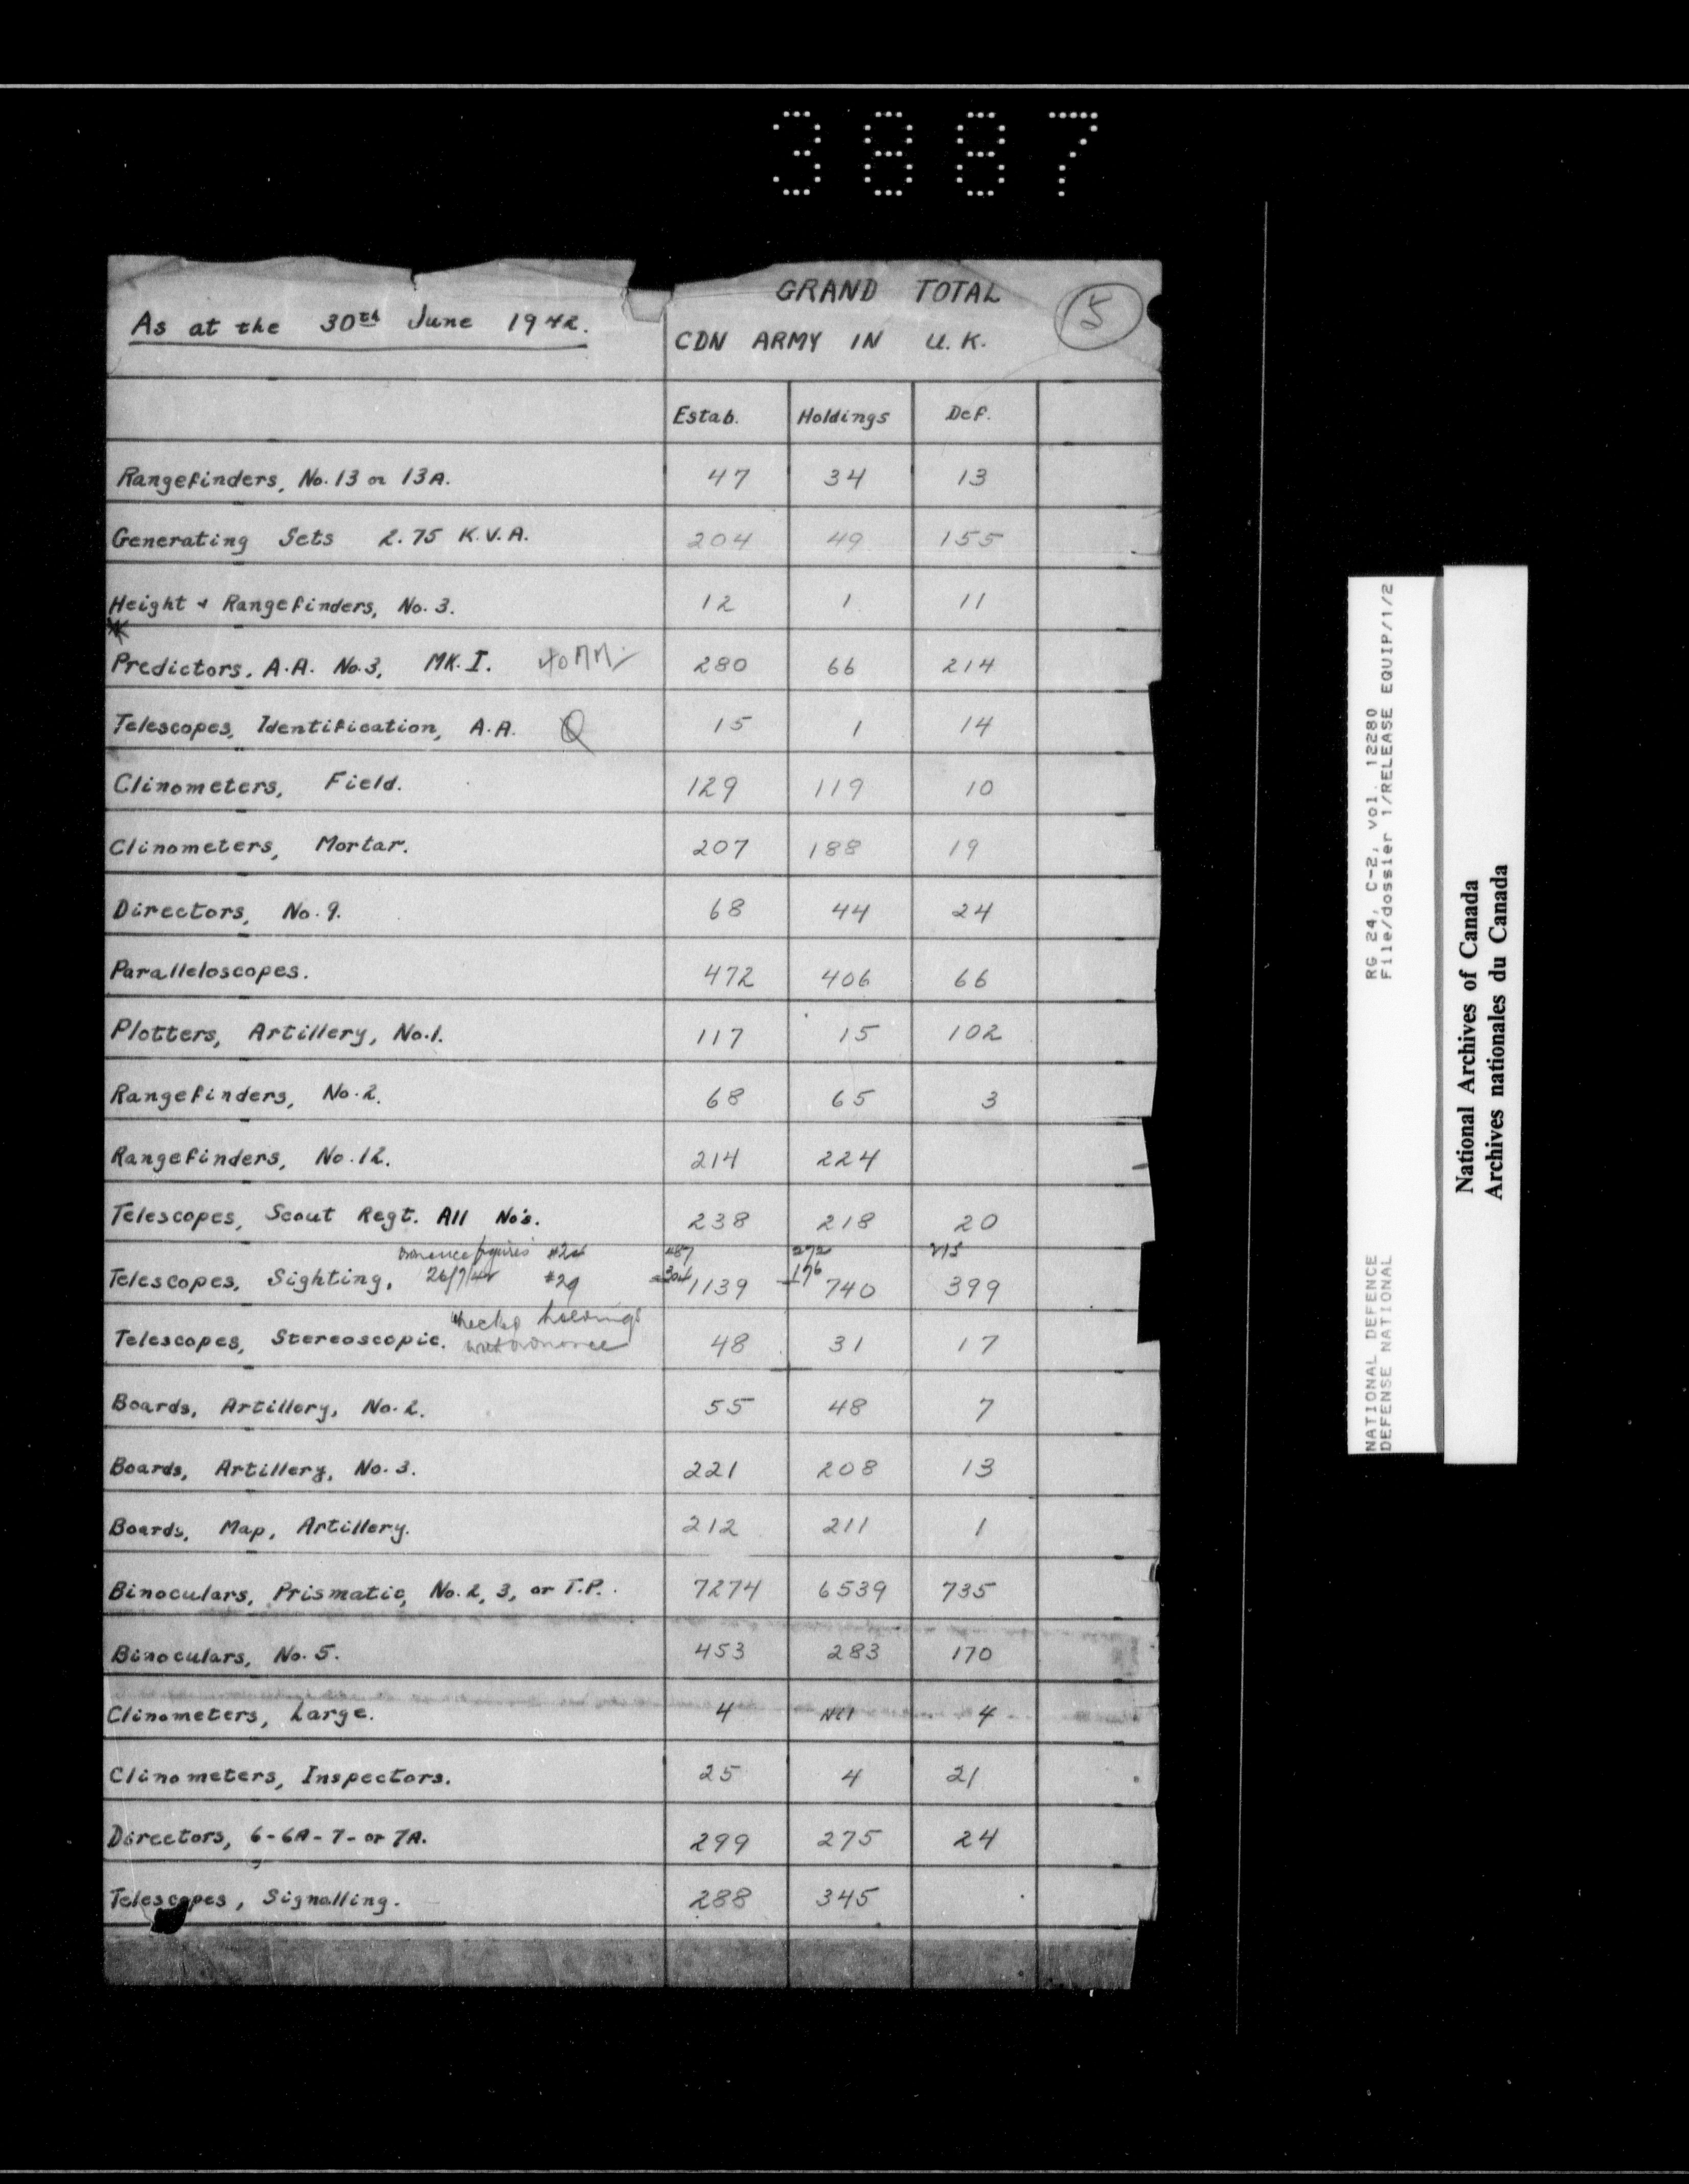 3887
GRAND TOTAL
5
As at the 30th June 1942.
CDN ARMY IN U.K.
Estab. Holdings Def.
Rangefinders, No. 13 or 13A. 47 34 13
Generating Sets 2.75 K.V.A. 204 49 155
Height & Rangefinders, No. 3. 12 1 11
Predictors. A.A. No. 3, MK. I. 40MM 280 66 214
Telescopes, Identification, A.A. Q 15 1 14
Clinometers, Field. 129 119 10
Clinometers, Mortar. 207 188 19
Directors, No. 9. 68 44 24
Paralleloscopes. 472 406 66
Plotters, Artillery, No. 1. 117 15 102
Rangefinders, No. 2. 68 65 3
Rangefinders, No. 12. 214 224
Telescopes, Scout Regt. All No's. 238 218 20
figures #24 487 272 215
Telescopes, Sighting, 26/7/42 #29 304 1139 176 740 399
holdings
Telescopes, Stereoscopic. 48 31 17
Boards, Artillery, No. 2. 55 48 7
Boards, Artillery, No. 3. 221 208 13
Boards, Map, Artillery. 212 211 1
Binoculars, Prismatic, No. 2, 3, or T.P. 7274 6539 735
Binoculars, No. 5. 453 283 170
Clinometers, Large. 4 Nil 4
Clinometers, Inspectors. 25 4 21
Directors, 6-6A-7- or 7A. 299 275 24
Telescopes, Signalling. 288 345
NATIONAL DEFENCE RG 24, C-2, Vol. 12280
DEFENSE NATIONAL File/dossier 1/RELEASE EQUIP/1/2
National Archives of Canada
Archives nationales du Canada